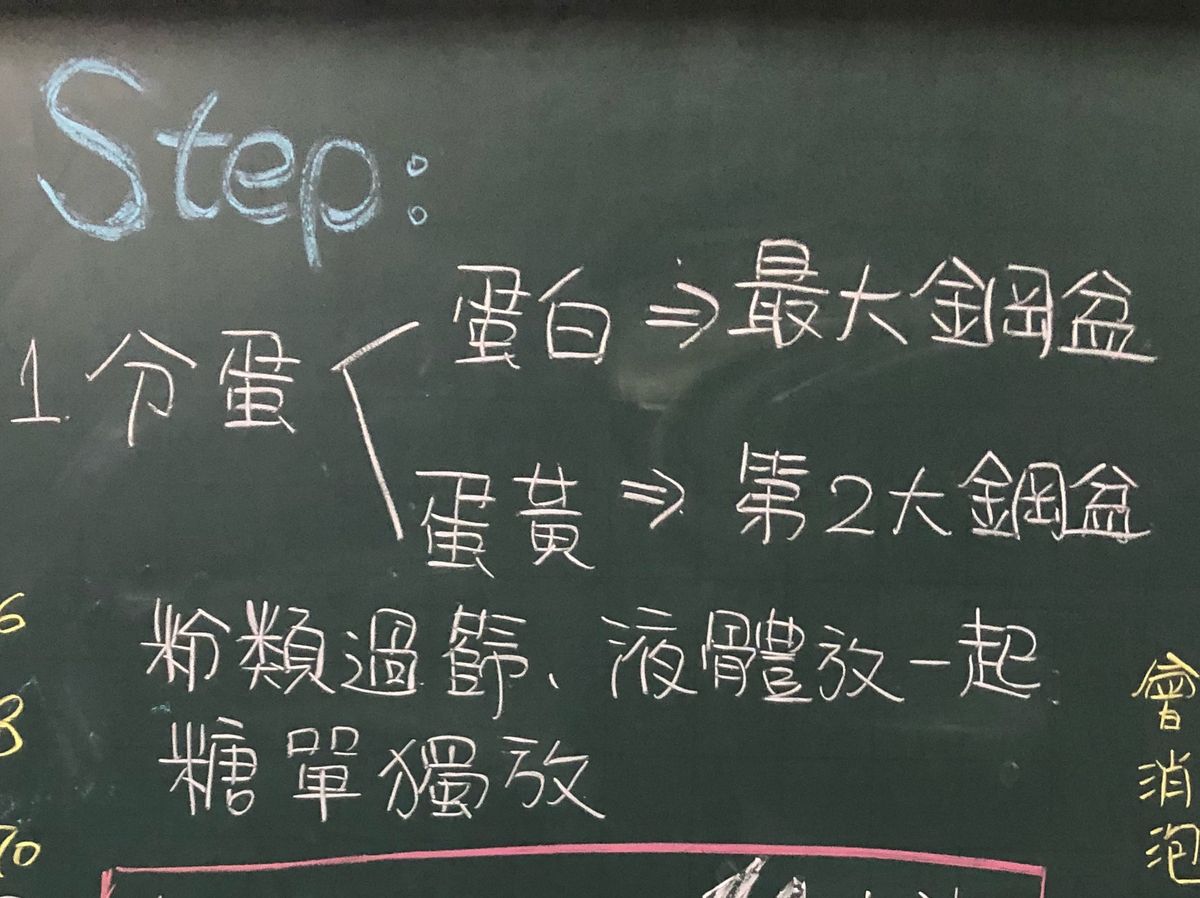 Step:
1. 分蛋
蛋白 ⇒ 最大鋼盆
蛋黃 ⇒ 第2大鋼盆
粉類過篩、液體放一起
糖單獨放
會消泡